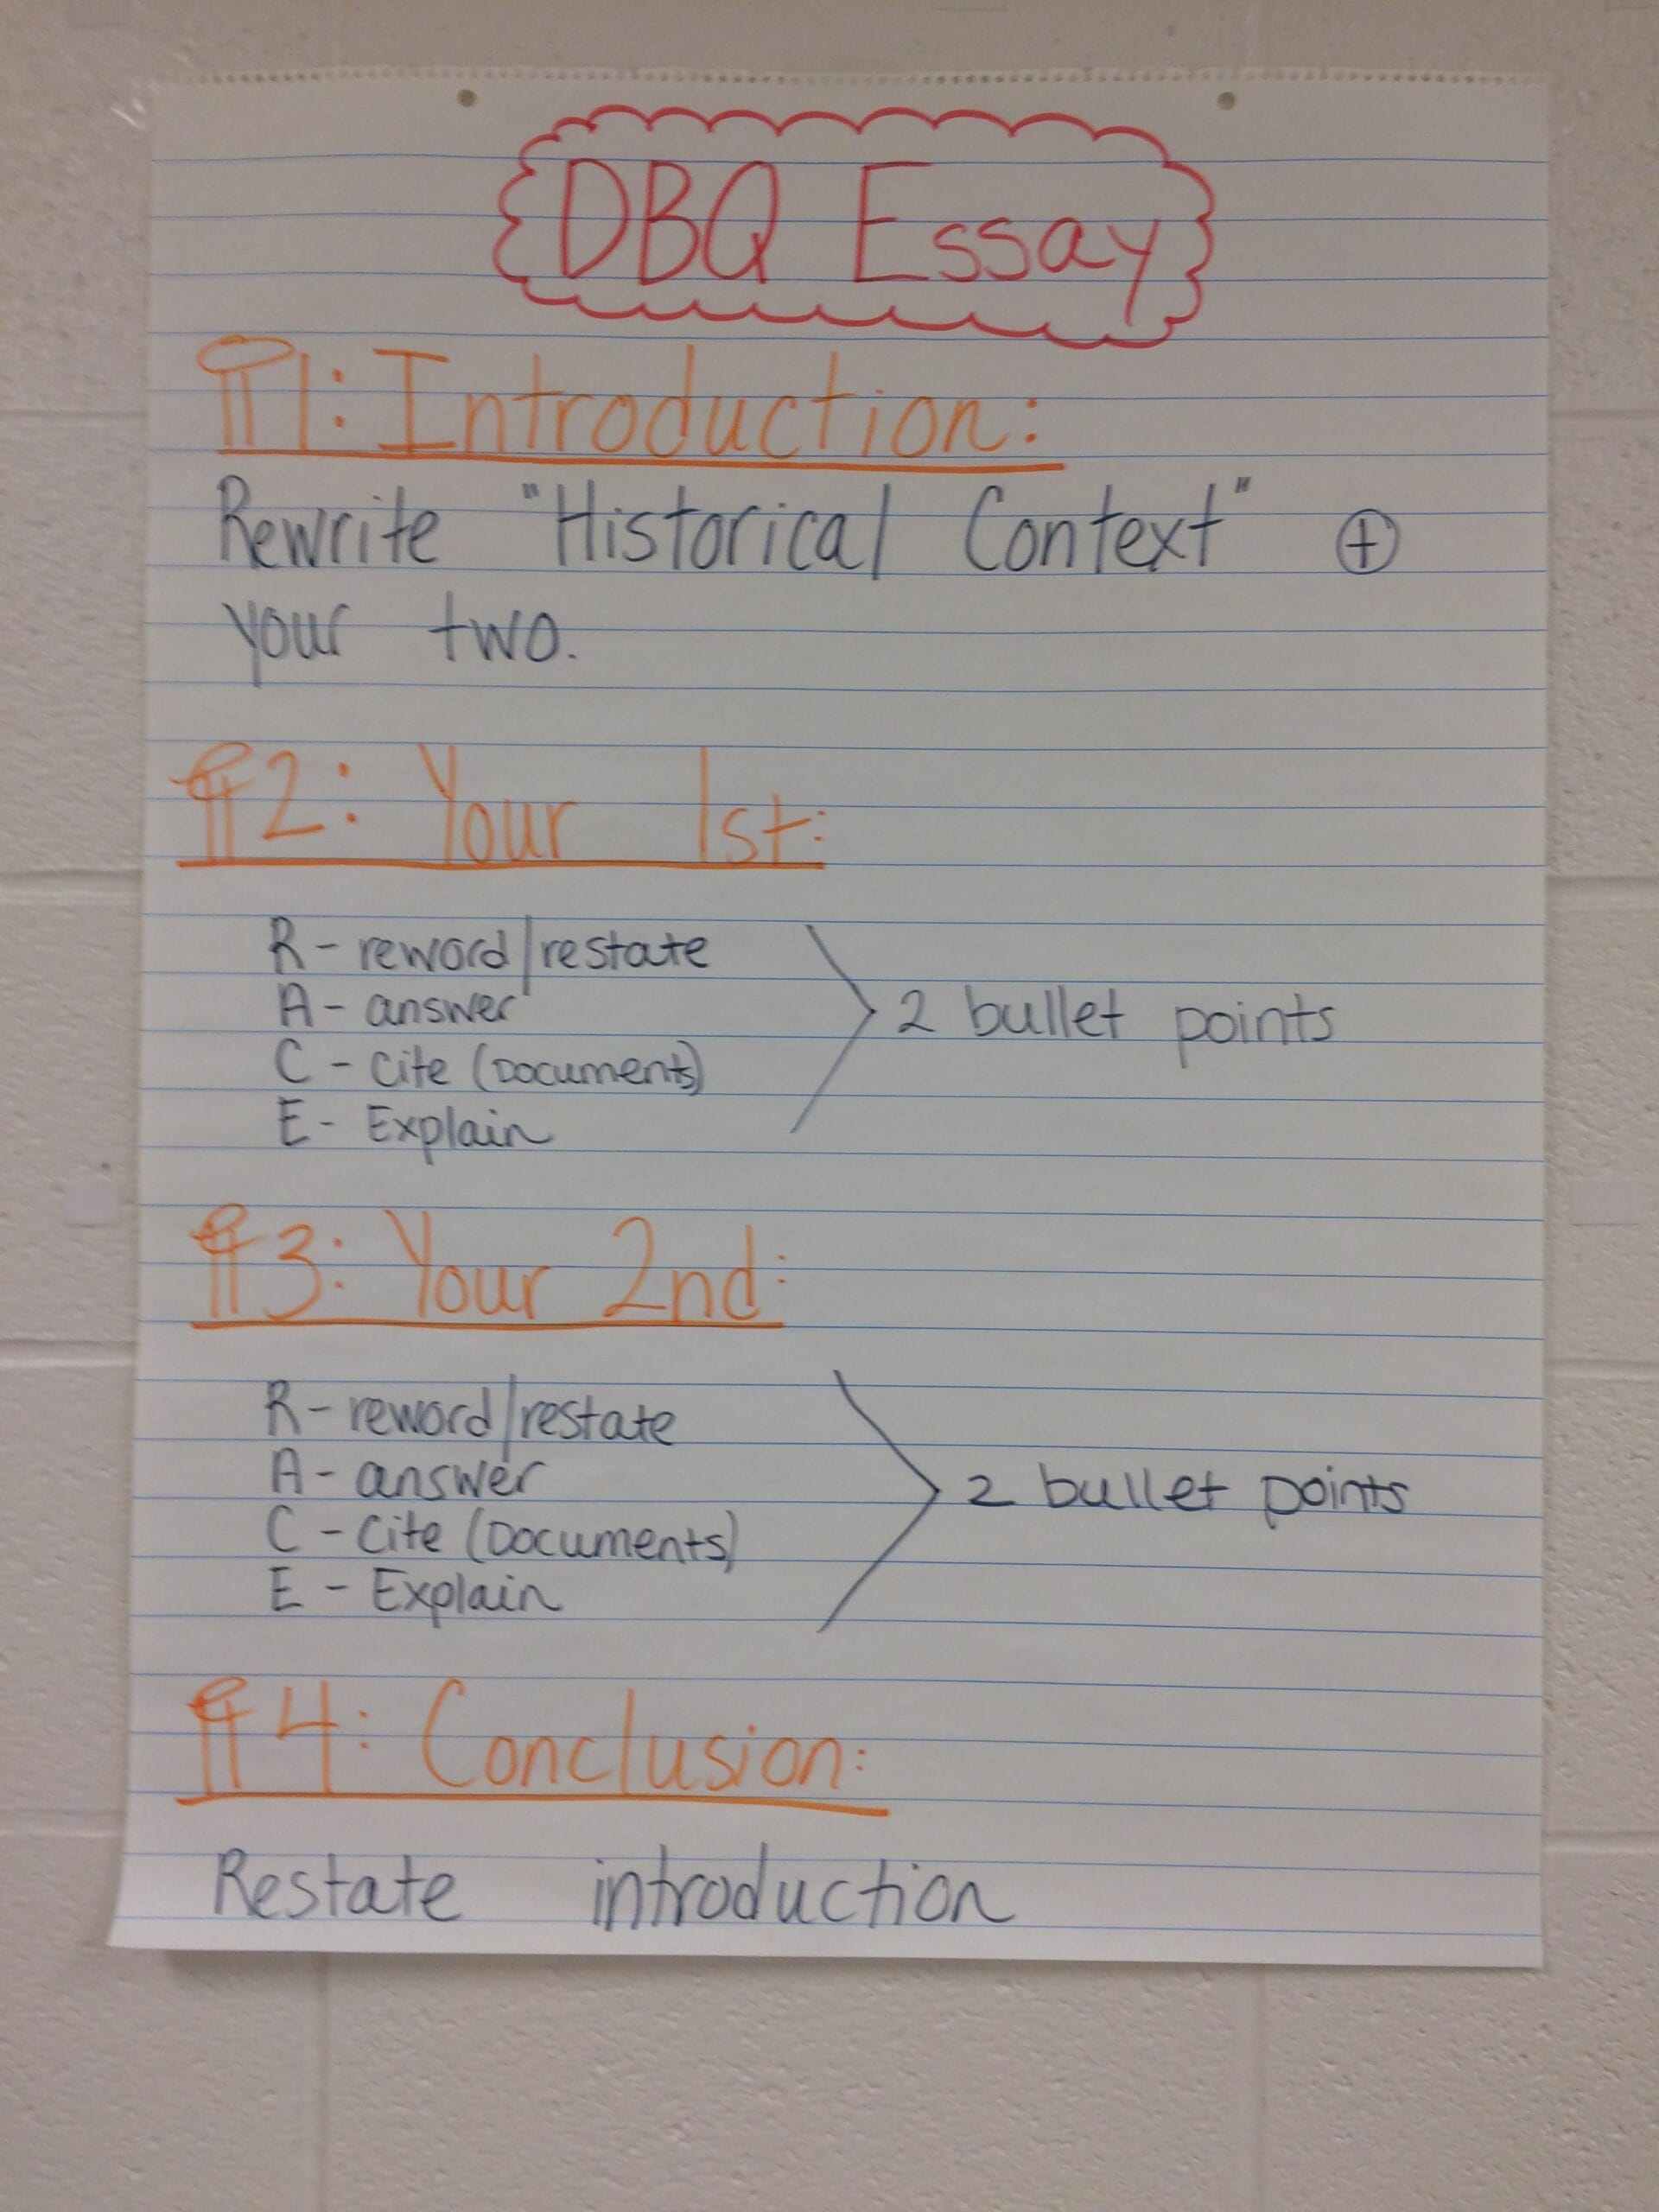 DBQ Essay
¶1: Introduction:
Rewrite "Historical Context" +
your two.
¶2: Your 1st:
R - reword/restate
A - answer
C - Cite (Documents)
E - Explain
2 bullet points
¶3: Your 2nd:
R - reword/restate
A - answer
C - Cite (Documents)
E - Explain
2 bullet points
¶4: Conclusion:
Restate introduction